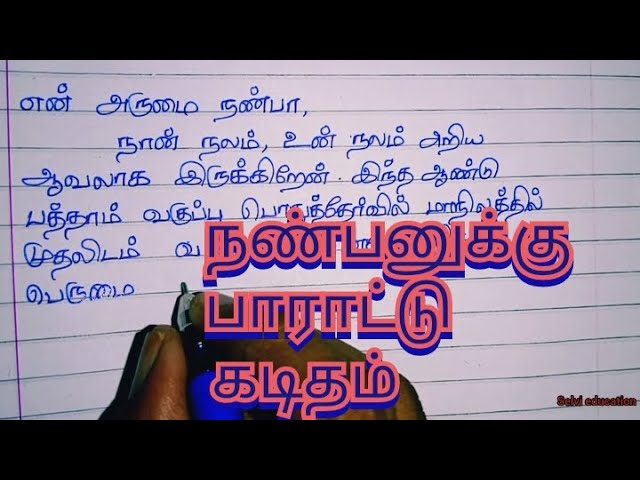 என் அருமை நண்பா,
நான் நலம், உன் நலம் அறிய
ஆவலாக இருக்கிறேன். இந்த ஆண்டு
பத்தாம் வகுப்பு பொதுத்தேர்வில் மாநிலத்தில்
முதலிடம்
பெருமை
நண்பனுக்கு
பாராட்டு
கடிதம்
Selvi education